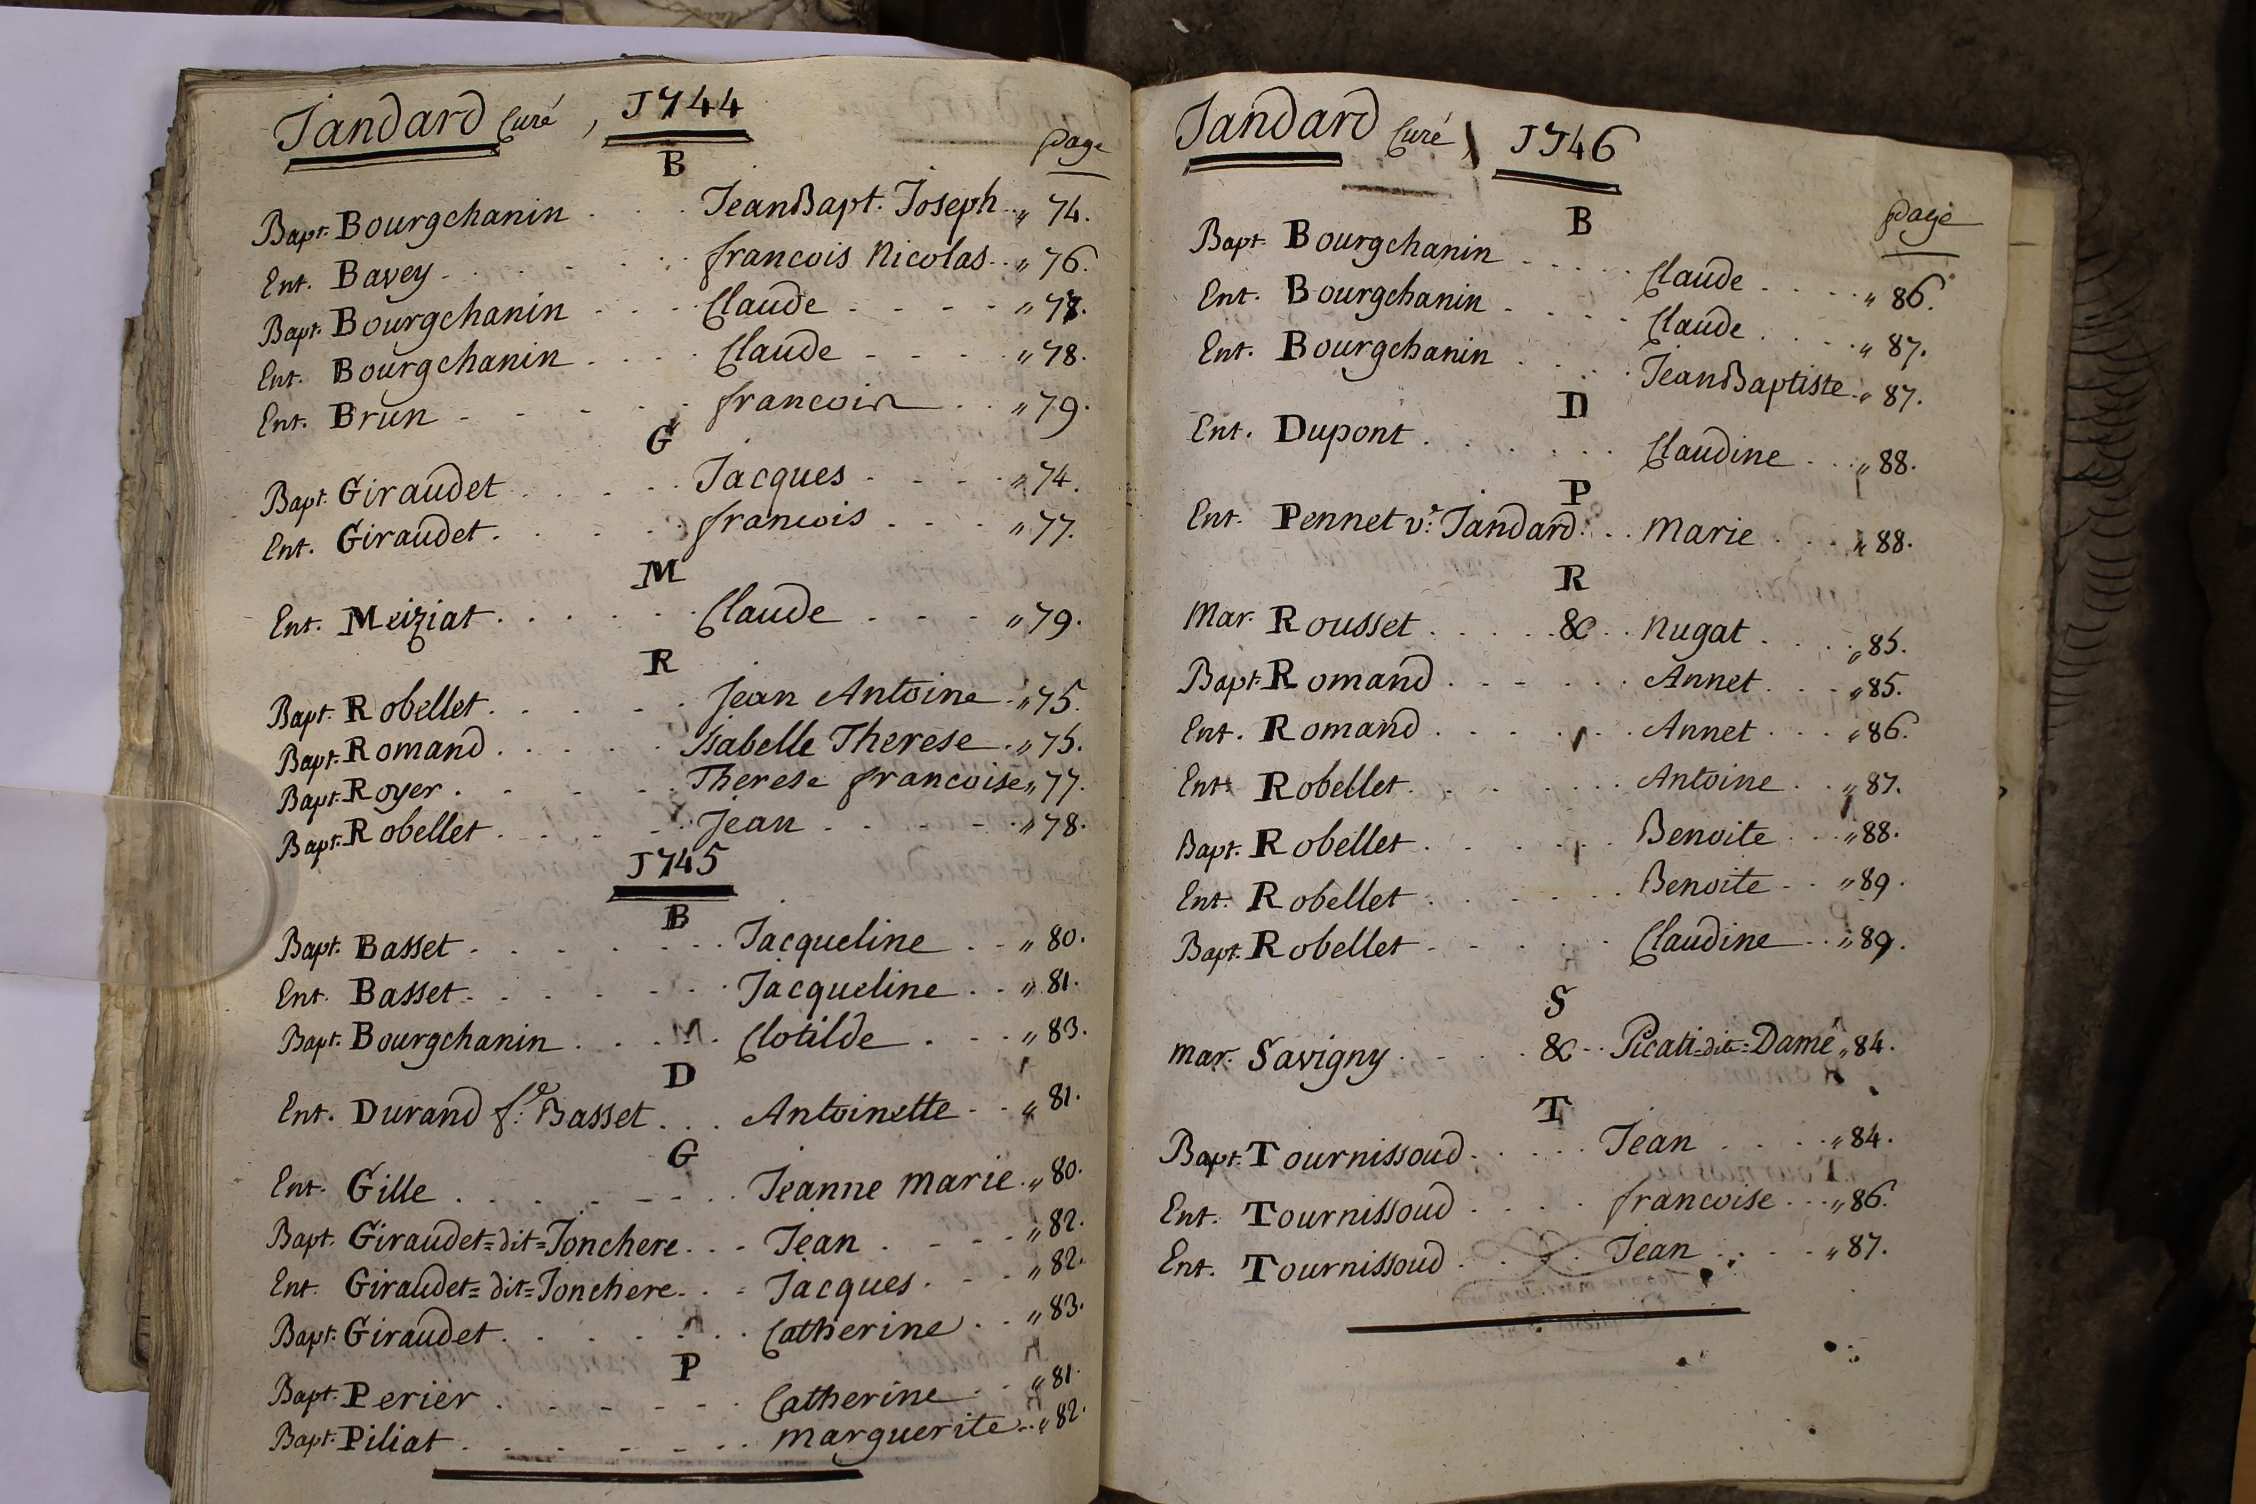 Jandard Curé, 1744
B
page
Bapt. Bourgchanin . . . . JeanBapt. Joseph „ 74.
Ent. Bavey . . . . . francois Nicolas „ 76.
Bapt. Bourgchanin . . . . Claude . . . . „ 77.
Ent. Bourgchanin . . . . Claude . . . . „ 78.
Ent. Brun . . . . . francois . . „ 79.
G
Bapt. Giraudet . . . . . Jacques . . . . „ 74.
Ent. Giraudet . . . . . francois . . . „ 77.
M
Ent. Meiziat . . . . . Claude . . . . „ 79.
R
Bapt. Robellet . . . . . Jean Antoine „ 75.
Bapt. Romand . . . . . Isabelle Therese „ 75.
Bapt. Royer . . . . . Therese francoise „ 77.
Bapt. Robellet . . . . . Jean . . . . . „ 78.
1745
B
Bapt. Basset . . . . . . . Jacqueline . . „ 80.
Ent. Basset . . . . . . . Jacqueline . . „ 81.
Bapt. Bourgchanin . . . . Clotilde . . . „ 83.
D
Ent. Durand f.e Basset . . . Antoinette . . „ 81.
G
Ent. Gille . . . . . . . Jeanne Marie „ 80.
Bapt. Giraudet=dit=Jonchere . . . Jean . . . . „ 82.
Ent. Giraudet=dit=Jonchere . . . Jacques . . . „ 82.
Bapt. Giraudet . . . . . . . Catherine . . „ 83.
P
Bapt. Perier . . . . . . . Catherine . . „ 81.
Bapt. Piliat . . . . . . . marguerite „ 82.
Jandard Curé, 1746
B
page
Bapt. Bourgchanin . . . . . Claude . . . . „ 86.
Ent. Bourgchanin . . . . Claude . . . . „ 87.
Ent. Bourgchanin . . . . JeanBaptiste „ 87.
D
Ent. Dupont . . . . . . Claudine . . . „ 88.
P
Ent. Pennet v.e Jandard . . . Marie . . . . „ 88.
R
Mar. Rousset . . . . . & . . Nugat . . . . „ 85.
Bapt. Romand . . . . . . Annet . . . „ 85.
Ent. Romand . . . . . . Annet . . . „ 86.
Ent. Robellet . . . . . . Antoine . . „ 87.
Bapt. Robellet . . . . . . Benoite . . „ 88.
Ent. Robellet . . . . . . Benoite . . „ 89.
Bapt. Robellet . . . . . . Claudine . . „ 89.
S
mar. Savigny . . . . . & . . Picati=dit=Damé „ 84.
T
Bapt. Tournissoud . . . . . Jean . . . . „ 84.
Ent. Tournissoud . . . . francoise . . . „ 86.
Ent. Tournissoud . . . . Jean . . . . „ 87.